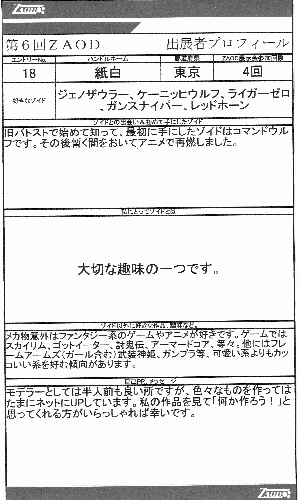 ZAOD
第6回ZAOD 出展者プロフィール
エントリーNo. ハンドルネーム 都道府県 ZAOD展示会参加回数
18 紙白 東京 4回
好きなゾイド ジェノザウラー、ケーニッヒウルフ、ライガーゼロ
、ガンスナイパー、レッドホーン
ゾイドとの出会い&初めて手にしたゾイド
旧バトストで始めて知って、最初に手にしたゾイドはコマンドウル
フです。その後暫く間をおいてアニメで再燃しました。
私にとってゾイドとは
大切な趣味の一つです。
メカ物意外はファンタジー系のゲームやアニメが好きです。ゲームでは
スカイリム、ゴットイーター、討鬼伝、アーマードコア、等々。他にはフレ
ームアームズ(ガール含む)武装神姫、ガンプラ等、可愛い系よりもカッ
コいい系を好む傾向があります。
自己PR、メッセージ
モデラーとしては半人前も良い所ですが、色々なものを作っては
たまにネットにUPしています。私の作品を見て「何か作ろう!」と
思ってくれる方がいらっしゃれば幸いです。
ZAOD